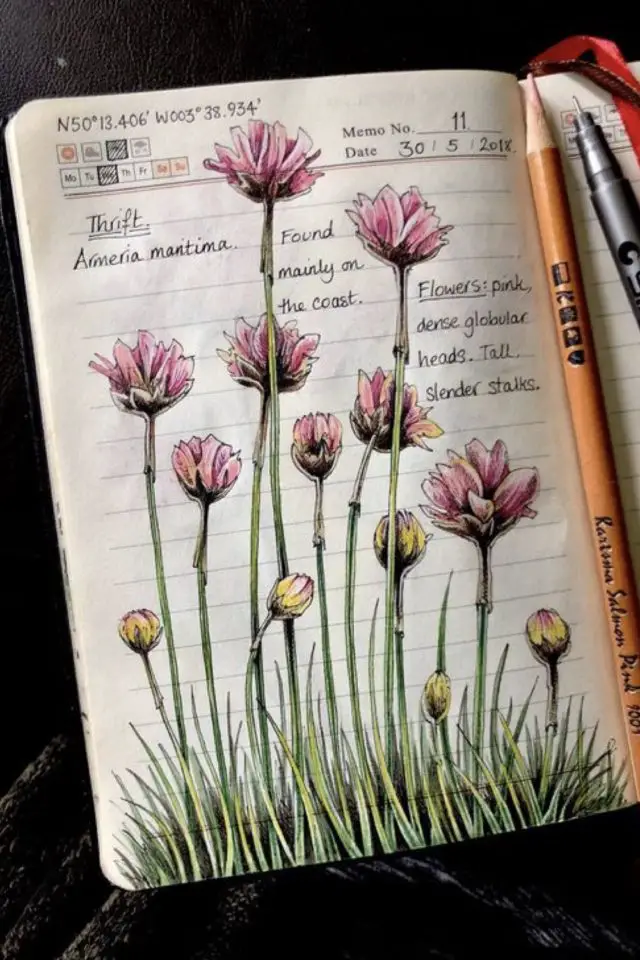 N50°13.406' W003°38.934'
Memo No. 11
Date 30 / 5 / 2018.
Mo Tu Th Fr Sa Su
Thrift.
Armeria maritima.
Found
mainly on
the coast.
Flowers: pink,
dense globular
heads. Tall,
slender stalks.
Karisma Salmon Pink 1001